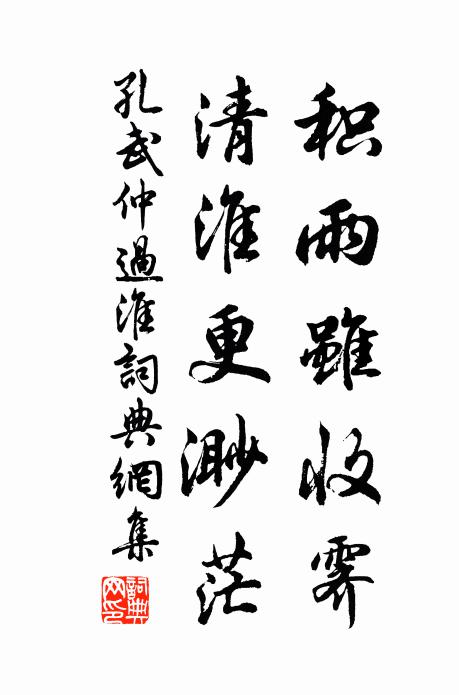 积雨雖收霽
清淮更渺茫
孔武仲過淮詞典網集
詞典網印